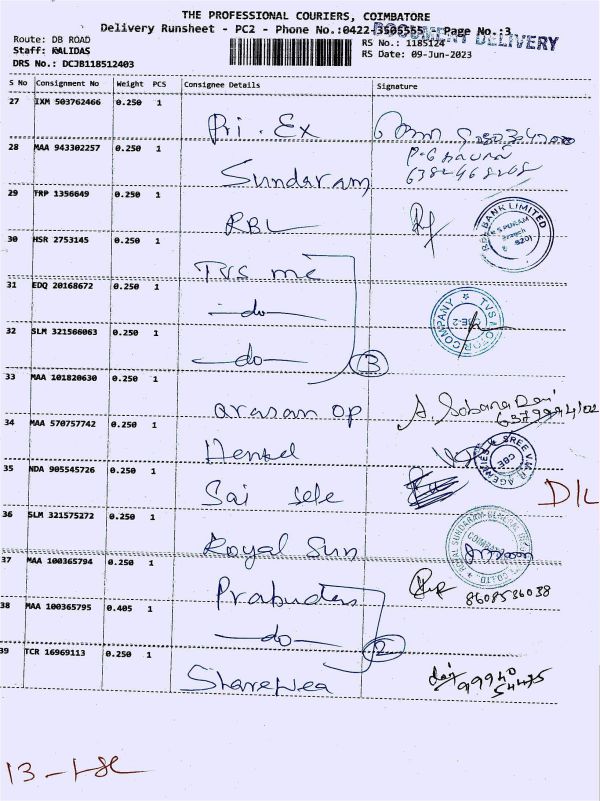 THE PROFESSIONAL COURIERS, COIMBATORE
Delivery Runsheet - PC2 - Phone No.:0422-3505555 Page No.:3
DOCUMENT DELIVERY
Route: DB ROAD
Staff: KALIDAS
DRS No.: DCJB118512403
RS No.: 1185124
RS Date: 09-Jun-2023
S No Consignment No Weight PCS Consignee Details Signature
27 IXM 503762466 0.250 1 Pri. Ex
28 MAA 943302257 0.250 1 Sundaram
29 TRP 1356649 0.250 1 RBL
RBL BANK LIMITED
30 HSR 2753145 0.250 1 TVS mc
31 EDQ 20168672 0.250 1 -do-
TVS MOTOR COMPANY
CBE-2
32 SLM 321566063 0.250 1 -do-
3
33 MAA 101820630 0.250 1 arasan op A. Sobana Devi
34 MAA 570757742 0.250 1 Henkel
CBE
35 NDA 905545726 0.250 1 Sai sele D/L
36 SLM 321575272 0.250 1 Royal Sun
37 MAA 100365794 0.250 1 Prabudas
8608536038
38 MAA 100365795 0.405 1 -do-
2
39 TCR 16969113 0.250 1 Sharewea
99940
54475